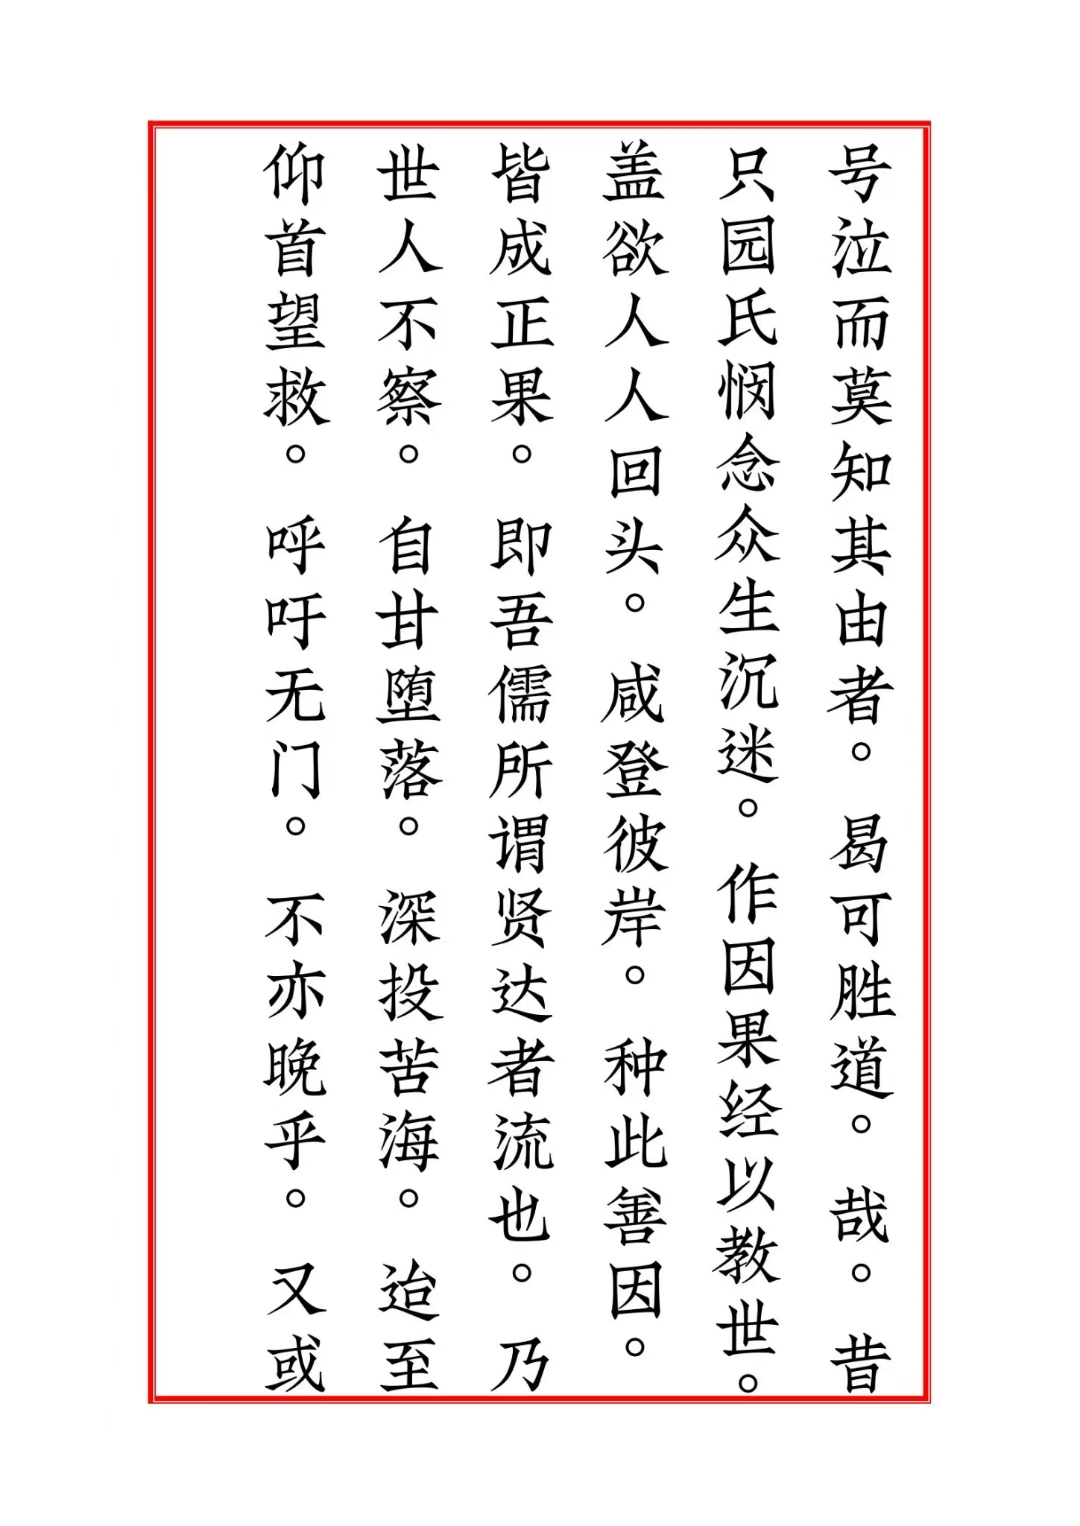 号泣而莫知其由者。曷可胜道。哉。昔
只园氏悯念众生沉迷。作因果经以教世。
盖欲人人回头。咸登彼岸。种此善因。
皆成正果。即吾儒所谓贤达者流也。乃
世人不察。自甘堕落。深投苦海。迨至
仰首望救。呼吁无门。不亦晚乎。又或